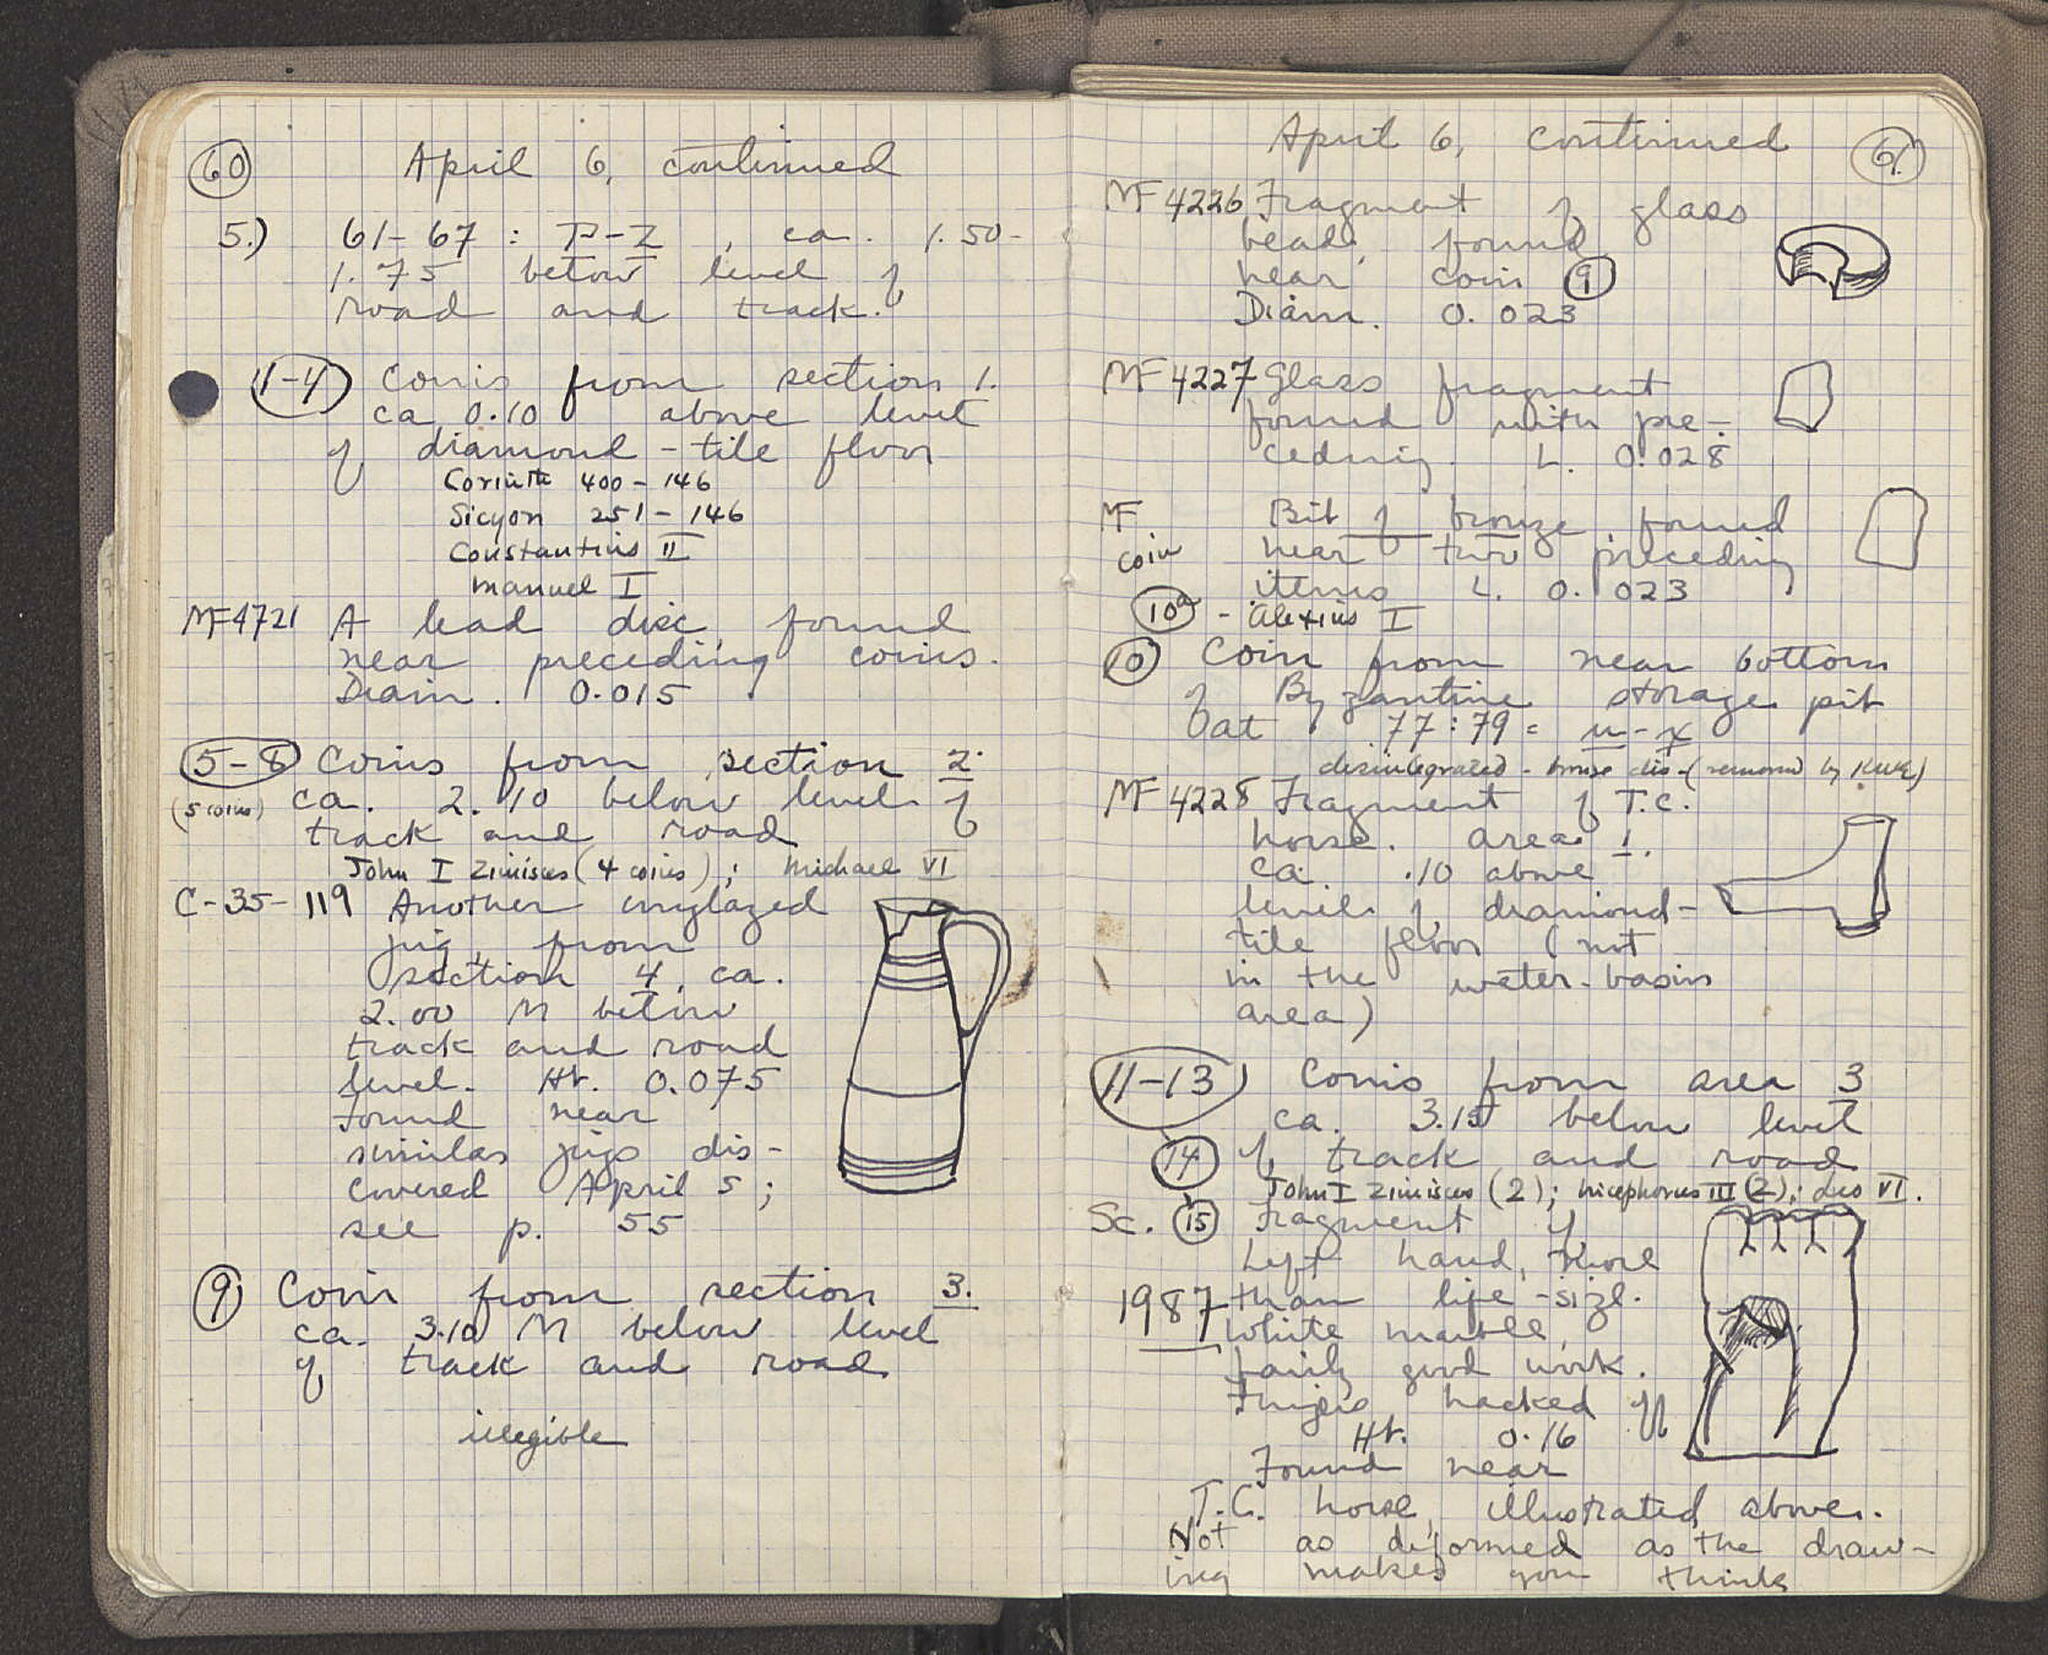 60
April 6, continued
5.) 61-67 : P-Z, ca. 1.50-
1.75 below level of
road and track.
1-4 Coins from section 1.
ca 0.10 above level
of diamond-tile floor
Corinth 400-146
Sicyon 251-146
Constantius II
Manuel I
MF4721 A lead disc found
near preceding coins.
Diam. 0.015
5-8 Coins from section 2.
(5 coins) ca. 2.10 below level of
track and road
John I Zimisces (4 coins); Michael VI
C-35-119 Another unglazed
jug, from
section 4, ca.
2.00 M below
track and road
level. Ht. 0.075
Found near
similar jugs dis-
covered April 5;
see p. 55
9 Coin from section 3.
ca. 3.10 M below level
of track and road
illegible
April 6, continued
61.
MF 4226 Fragment of glass
bead, found
near coin 9
Diam. 0.023
MF 4227 Glass fragment
found with pre-
ceding. L. 0.028
MF Bit of bronze found
coin near two preceding
items L. 0.023
10a - Alexius I
10 Coin from near bottom
of Byzantine storage pit
at 77:79 = u-x
disintegrated - bronze dis- (removed by KME)
MF 4228 Fragment of T.C.
horse. area 1.
ca. .10 above
level of diamond-
tile floor (not
in the water-basin
area)
11-13 Coins from area 3
ca. 3.15 below level
14 of track and road
John I Zimisces (2); Nicephorus III (2); Leo VI.
Sc. 15 Fragment of
left hand, more
1987 than life-size.
White marble,
fairly good work.
Fingers hacked off
Ht. 0.16
Found near
T.C. horse, illustrated above.
Not as deformed as the draw-
ing makes you think